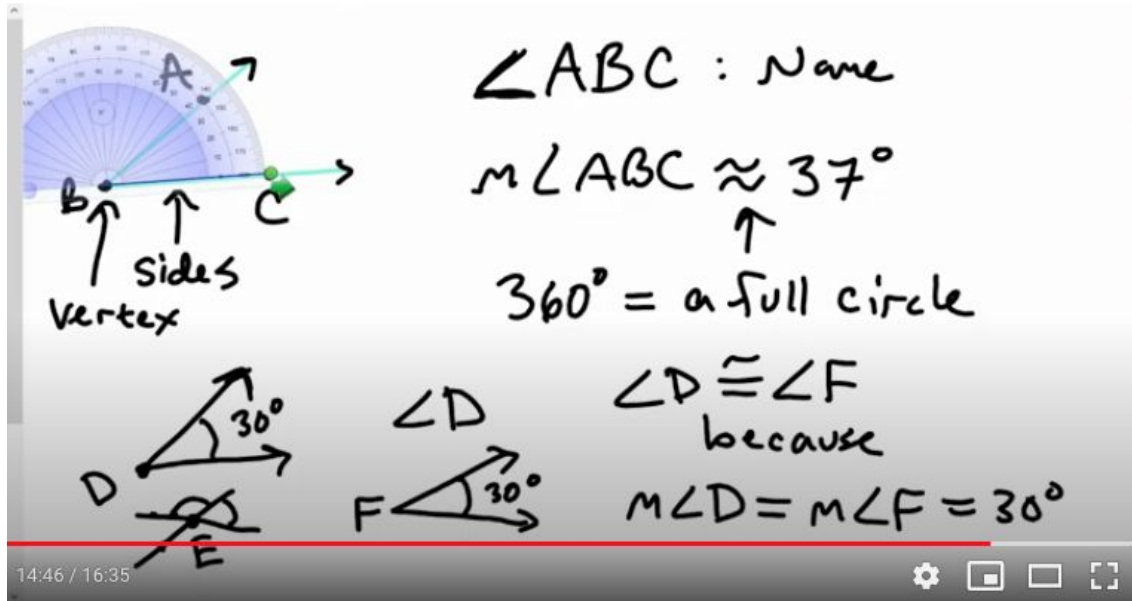 A
B
C
sides
vertex
∠ABC : Name
m∠ABC ≈ 37°
360° = a full circle
D
30°
∠D
E
F
30°
∠D ≅ ∠F
because
m∠D = m∠F = 30°
14:46 / 16:35